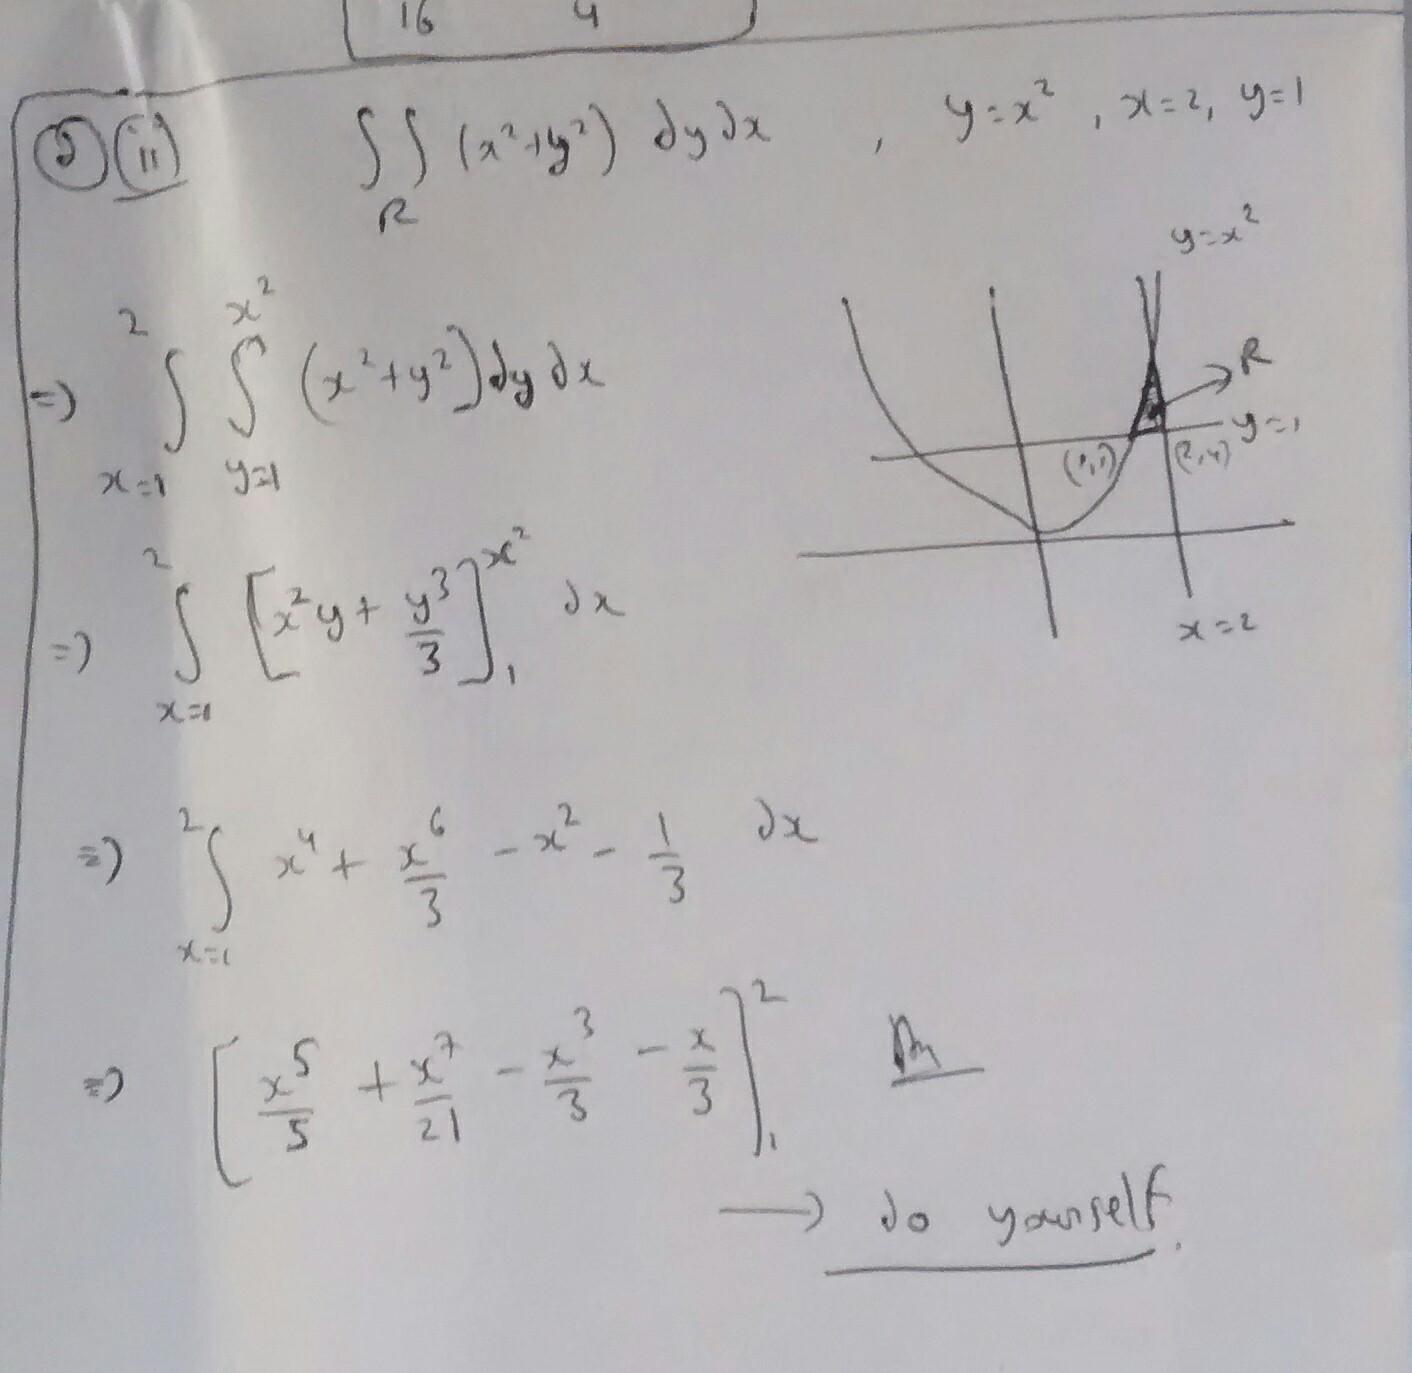 16 4
⑤ (ii) ∫∫_R (x²+y²) dy dx , y=x² , x=2, y=1
y=x²
⇒ ∫_{x=1}^{2} ∫_{y=1}^{x²} (x²+y²) dy dx
R
y=1
(1,1) (2,4)
x=2
⇒ ∫_{x=1}^{2} [x²y + y³/3]_1^{x²} dx
⇒ ∫_{x=1}^{2} x⁴ + x⁶/3 - x² - 1/3 dx
⇒ [x⁵/5 + x⁷/21 - x³/3 - x/3]_1^2
→ do yourself.